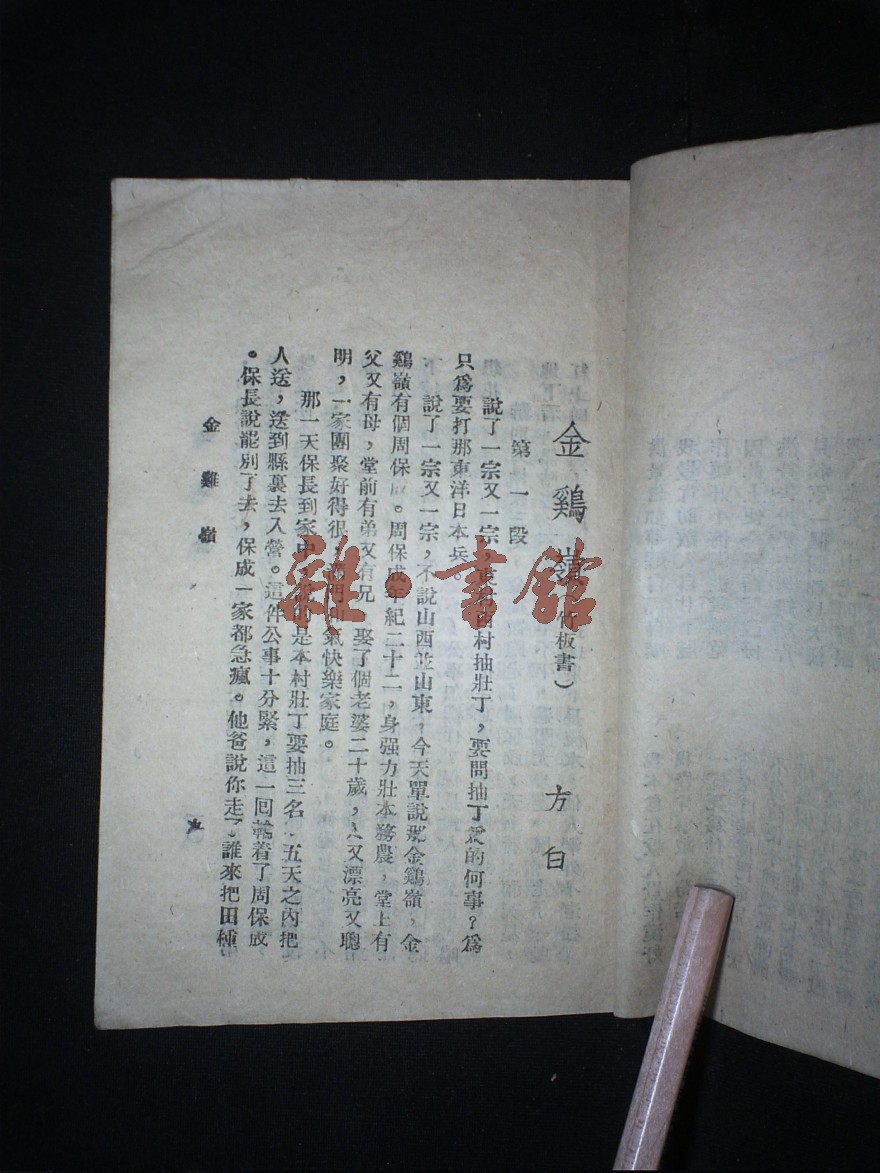 金鷄嶺（竹板書）　方白
第一段
說了一宗又一宗，東村西村抽壯丁，要問抽丁爲的何事？爲
只爲要打那東洋日本兵。
說了一宗又一宗，不說山西並山東，今天單說那金鷄嶺，金
鷄嶺有個周保成。周保成年紀二十二，身强力壯本務農，堂上有
父又有母，堂前有弟又有兄，娶了個老婆二十歲，人又漂亮又聰
明，一家團聚好得很，滿門和氣快樂家庭。
那一天保長到家中，說的是本村壯丁要抽三名，五天之內把
人送，送到縣裏去入營。這件公事十分緊，這一回輪着了周保成
。保長說罷別了去，保成一家都急瘋。他爸說你走了誰來把田種
金雞嶺
雜·書館